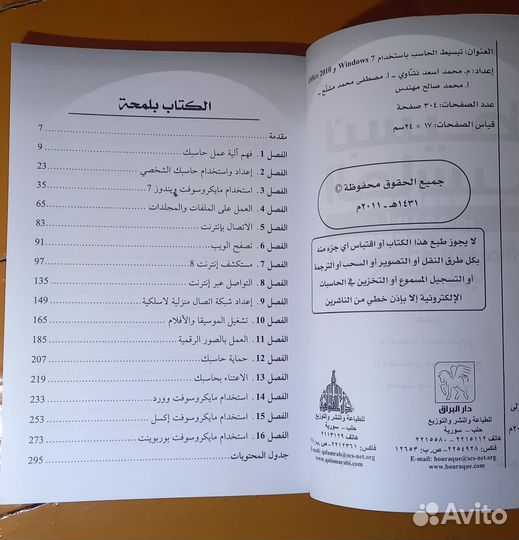 العنوان: تبسيط الحاسب باستخدام Windows 7 و Office 2010
إعداد: م. محمد أسعد نشّاوي ـ أ. مصطفى محمد مشلح ـ
أ. محمد صالح مهندس
عدد الصفحات: ٣٠٤ صفحة
قياس الصفحات: ١٧ × ٢٤سم
جميع الحقوق محفوظة ©
١٤٣١هـ ـ ٢٠١١م
لا يجوز طبع هذا الكتاب أو اقتباس أي جزء منه
بكل طرق النقل أو التصوير أو السحب أو الترجمة
أو التسجيل المسموع أو التخزين في الحاسبات
الإلكترونية إلا بإذن خطي من الناشرين
دار البراق
للطباعة والنشر والتوزيع
حلب ـ سورية
هاتف ٢٢١٥١١٢ ـ ٢٢١٥٥٨٠
فاكس: ٢٢٥٤٩٢٨ ـ ص.ب: ١٢٦٥٣
E-mail: bouraque@scs-net.org
www.bouraque.com
للطباعة والنشر والتوزيع
حلب ـ سورية
هاتف: ٢١١٣١٢٩
فاكس: ٢٢١٢٣٦١ ص.ب:
E-mail: qalamrab@scs-net.org
www.qalamarabi.com
الكتاب بلمحة
مقدمة 7
الفصل 1. فهم آلية عمل حاسبك 9
الفصل 2. إعداد واستخدام حاسبك الشخصي 23
الفصل 3. استخدام مايكروسوفت ويندوز 7 35
الفصل 4. العمل على الملفات والمجلدات 65
الفصل 5. الاتصال بإنترنت 83
الفصل 6. تصفح الويب 91
الفصل 7. مستكشف إنترنت 8 95
الفصل 8. التواصل عبر إنترنت 135
الفصل 9. إعداد شبكة اتصال منزلية لاسلكية 149
الفصل 10. تشغيل الموسيقا والأفلام 165
الفصل 11. العمل بالصور الرقمية 185
الفصل 12. حماية حاسبك 207
الفصل 13. الاعتناء بحاسبك 219
الفصل 14. استخدام مايكروسوفت وورد 231
الفصل 15. استخدام مايكروسوفت إكسل 253
الفصل 16. استخدام مايكروسوفت بوربوينت 273
جدول المحتويات 295
Avito